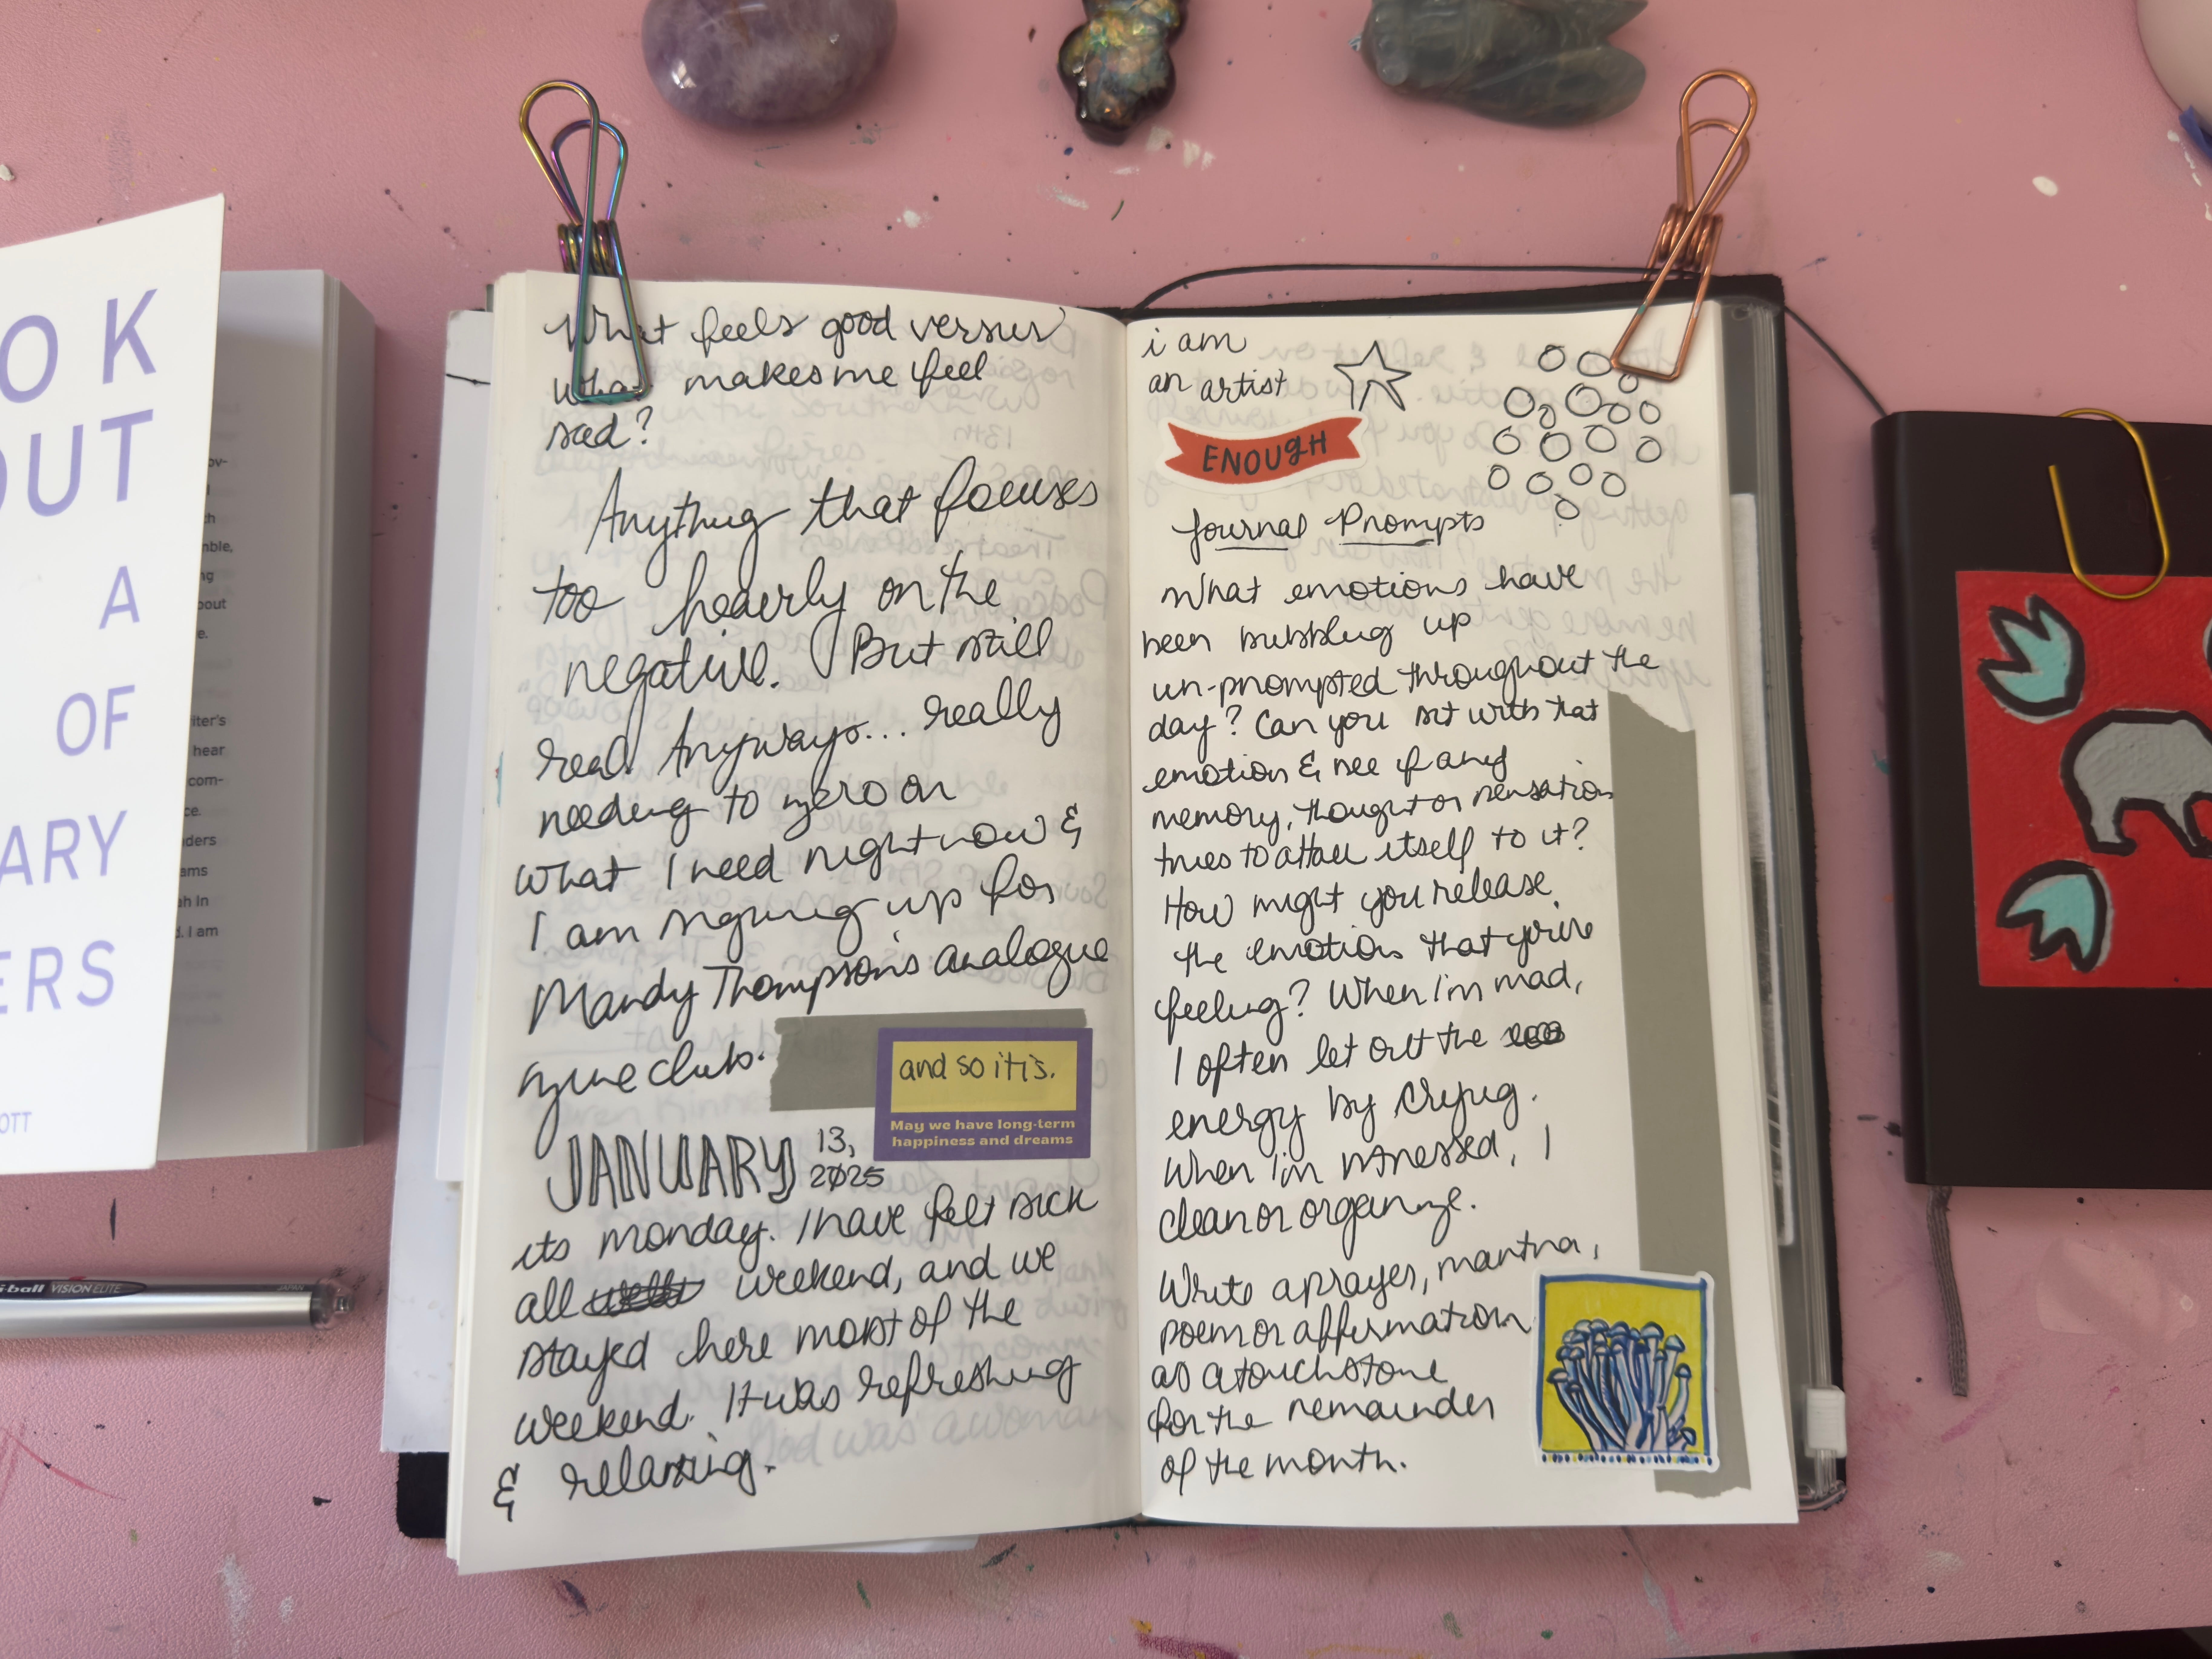 OOK
OUT
A
OF
ARY
ERS
OTT
ov-
th
nble,
ng
bout
e.
iter's
hear
com-
ce.
ders
ams
gh in
d. I am
i-ball VISION ELITE JAPAN
What feels good versus
what makes me feel
sad?
Anything that focuses
too heavily on the
negative. But still
read. Anyways... really
needing to zero on
what I need right now &
I am signing up for
Mandy Thompson's analogue
zine club.
and so it is.
May we have long-term
happiness and dreams
JANUARY 13,
2025
its monday. I have felt sick
all weekend, and we
stayed here most of the
weekend. It was refreshing
& relaxing.
i am
an artist
ENOUGH
Journal Prompts
What emotions have
been bubbling up
un-prompted throughout the
day? Can you sit with that
emotion & see if any
memory, thought or sensation
tries to attach itself to it?
How might you release
the emotion that you're
feeling? When I'm mad,
I often let out the
energy by crying.
When I'm stressed, I
clean or organize.
Write a prayer, mantra,
poem or affirmation
as a touchstone
for the remainder
of the month.